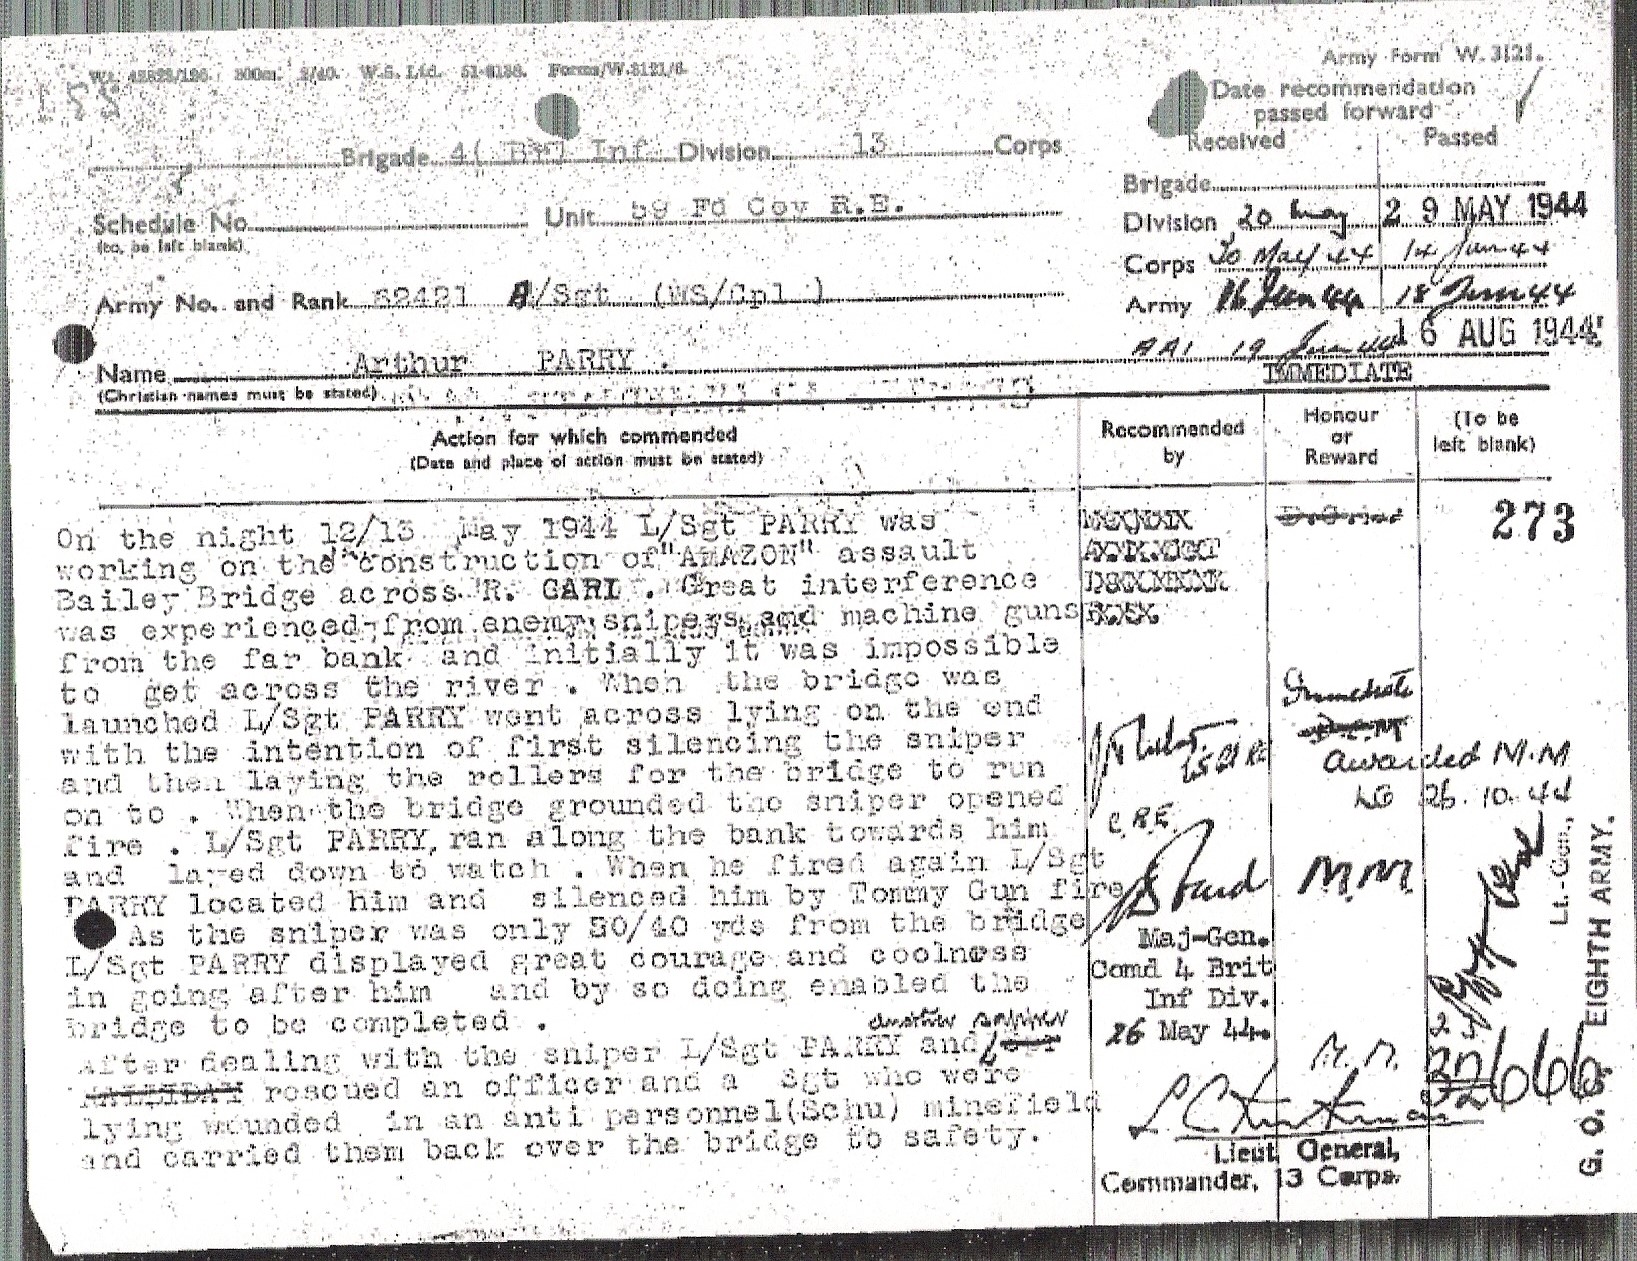 Army Form W. 3121.
Wt. 300m. 2/40. W.S. Ltd. Forms/W.3121/6.
Date recommendation
passed forward
Received Passed
Brigade 4( Inf Division 13 Corps
Brigade
Schedule No. Unit 59 Fd Coy R.E.
(to be left blank)
Division 20 May 29 MAY 1944
Corps 30 May 44 14 Jun 44
Army No. and Rank /Sgt (WS/Cpl )
Army 16 Jun 44 18 Jun 44
AAI 19 16 AUG 1944
Name Arthur PARRY .
(Christian names must be stated)
IMMEDIATE
Action for which commended
(Date and place of action must be stated)
Recommended
by
Honour
or
Reward
(To be
left blank)
273
On the night 12/13 May 1944 L/Sgt PARRY was
working on the construction of "AMAZON" assault
Bailey Bridge across R. GARI . Great interference
was experienced from enemy snipers and machine guns
from the far bank and initially it was impossible
to get across the river . When the bridge was
launched L/Sgt PARRY went across lying on the end
with the intention of first silencing the sniper
and then laying the rollers for the bridge to run
on to . When the bridge grounded the sniper opened
fire . L/Sgt PARRY, ran along the bank towards him
and layed down to watch . When he fired again L/Sgt
PARRY located him and silenced him by Tommy Gun fire
As the sniper was only 30/40 yds from the bridge
L/Sgt PARRY displayed great courage and coolness
in going after him and by so doing enabled the
bridge to be completed .
another sapper
After dealing with the sniper L/Sgt PARRY and
rescued an officer and a Sgt who were
lying wounded in an anti personnel(Schu) minefield
and carried them back over the bridge to safety.
C.R.E.
Maj-Gen.
Comd 4 Brit
Inf Div.
26 May 44.
Lieut General,
Commander, 13 Corps.
Immediate
D.C.M
Awarded M.M
LG 26. 10. 44
M.M
M.M.
Lt.-Gen.,
G. O. C. EIGHTH ARMY.